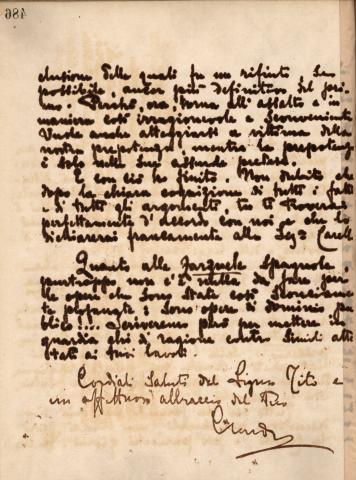 486
clusione delle quali fu un rifiuto, se
possibile, ancor più definitivo del pri-
mo. Perché, ora, torna all'assalto e in
maniera così irragionevole e sconveniente
Vuole anche atteggiarsi a vittima della
nostra prepotenza, mentre la prepotenza
è solo nelle sue assurde pretese.
E con ciò ho finito. Non dubito che
dopo la chiara cognizione di tutti i fatti
e di tutti gli argomenti, tu ti troverai
perfettamente d'accordo con noi e che lo
dichiarerai francamente alla Sig.ª
Quanto alle Zarzuele Spagnole,
purtroppo non c'è nulla da fare per
le opere che sono state così
te plagiate: sono opere di dominio pub
blico!!! Scriveremo però per mettere in
guardia chi di ragione contro simili atten
tati ai tuoi lavori
Cordiali saluti del Signor Tito e
un affettuoso abbraccio del tuo